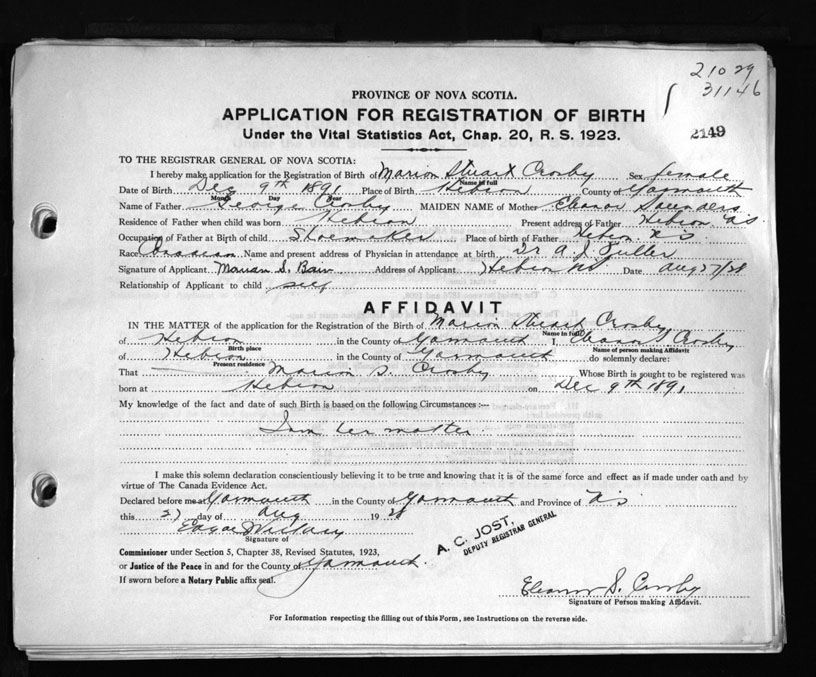 21029
31146
PROVINCE OF NOVA SCOTIA.
APPLICATION FOR REGISTRATION OF BIRTH
Under the Vital Statistics Act, Chap. 20, R. S. 1923.
2149
TO THE REGISTRAR GENERAL OF NOVA SCOTIA:
I hereby make application for the Registration of Birth of Marion Stuart Crosby Sex female
Name in full
Date of Birth Dec 9th 1891 Place of Birth Hebron County of Yarmouth
Month Day Year
Name of Father George Crosby MAIDEN NAME of Mother Eleanor Saunders
Residence of Father when child was born Hebron Present address of Father Hebron N S
Occupation of Father at Birth of child Shoemaker Place of birth of Father Hebron N S
Race Name and present address of Physician in attendance at birth Dr A. J. Fuller
Signature of Applicant Marian S. Address of Applicant Hebron NS Date Aug 27/28
Relationship of Applicant to child self
AFFIDAVIT
IN THE MATTER of the application for the Registration of the Birth of Marion Stuart Crosby
Name in full
of Hebron in the County of Yarmouth I, Eleanor S Crosby
Birth place Name of person making Affidavit
of Hebron in the County of Yarmouth do solemnly declare:
Present residence
That Marion S. Crosby Whose Birth is sought to be registered was
born at Hebron on Dec 9th 1891
My knowledge of the fact and date of such Birth is based on the following Circumstances :—
I am her mother
I make this solemn declaration conscientiously believing it to be true and knowing that it is of the same force and effect as if made under oath and by
virtue of The Canada Evidence Act.
Declared before me at Yarmouth in the County of Yarmouth and Province of N S
this 27 day of Aug 1928
Signature of
Commissioner under Section 5, Chapter 38, Revised Statutes, 1923,
or Justice of the Peace in and for the County of Yarmouth
If sworn before a Notary Public affix seal.
A. C. JOST,
DEPUTY REGISTRAR GENERAL
Eleanor S. Crosby
Signature of Person making Affidavit.
For Information respecting the filling out of this Form, see Instructions on the reverse side.